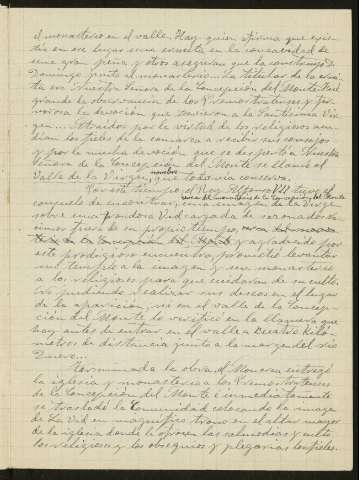 el monasterio en el valle. Hay quien afirma que exis-
tía en ese lugar una ermita en la concavidad de
una gran peña y otros aseguran que la construyó D.
Domingo junto al monasterio... La titular de la ermi-
ta era Nuestra Señora de la Concepción del Monte. Fué
grande la observancia de los Premostratenses y fer-
vorosa la devoción que tuvieron a la Santísima Vir-
gen... Atraídos por la virtud de los religiosos acu-
dían los fieles de la comarca a recibir sus consejos
y por la mucha devoción que se despertó a Nuestra
Señora de la Concepción del Monte se llamó el
Valle de la Virgen, nombre que todavía conserva.
Por este tiempo, el Rey Alfonso VII tuvo el
consuelo de encontrar, cerca del monasterio de la Concepción del Monte
una imagen de la Virgen
sobre una frondosa Vid cargada de sazonados ra-
cimos fuera de su propio tiempo,
y agradecido por
este prodigioso encuentro, prometió levantar
un templo a la imagen y un monasterio
a los religiosos para que cuidaran de su culto.
No pudiendo realizar sus deseos en el lugar
de la aparición, ni en el valle de la Concep-
ción del Monte lo verificó en la llanura que
hay antes de entrar en el valle a cuatro kiló-
metros de distancia junto a la margen del río
Duero...
Terminada la obra el Monarca entregó
la iglesia y monasterio a los Premostratenses
de la Concepción del Monte e inmediatamente
se trasladó la Comunidad colocando la imagen
de La Vid en magnífico trono en el altar mayor
de la iglesia donde le ofrecen las salmodias y culto
los religiosos y los obsequios y plegarias los fieles.